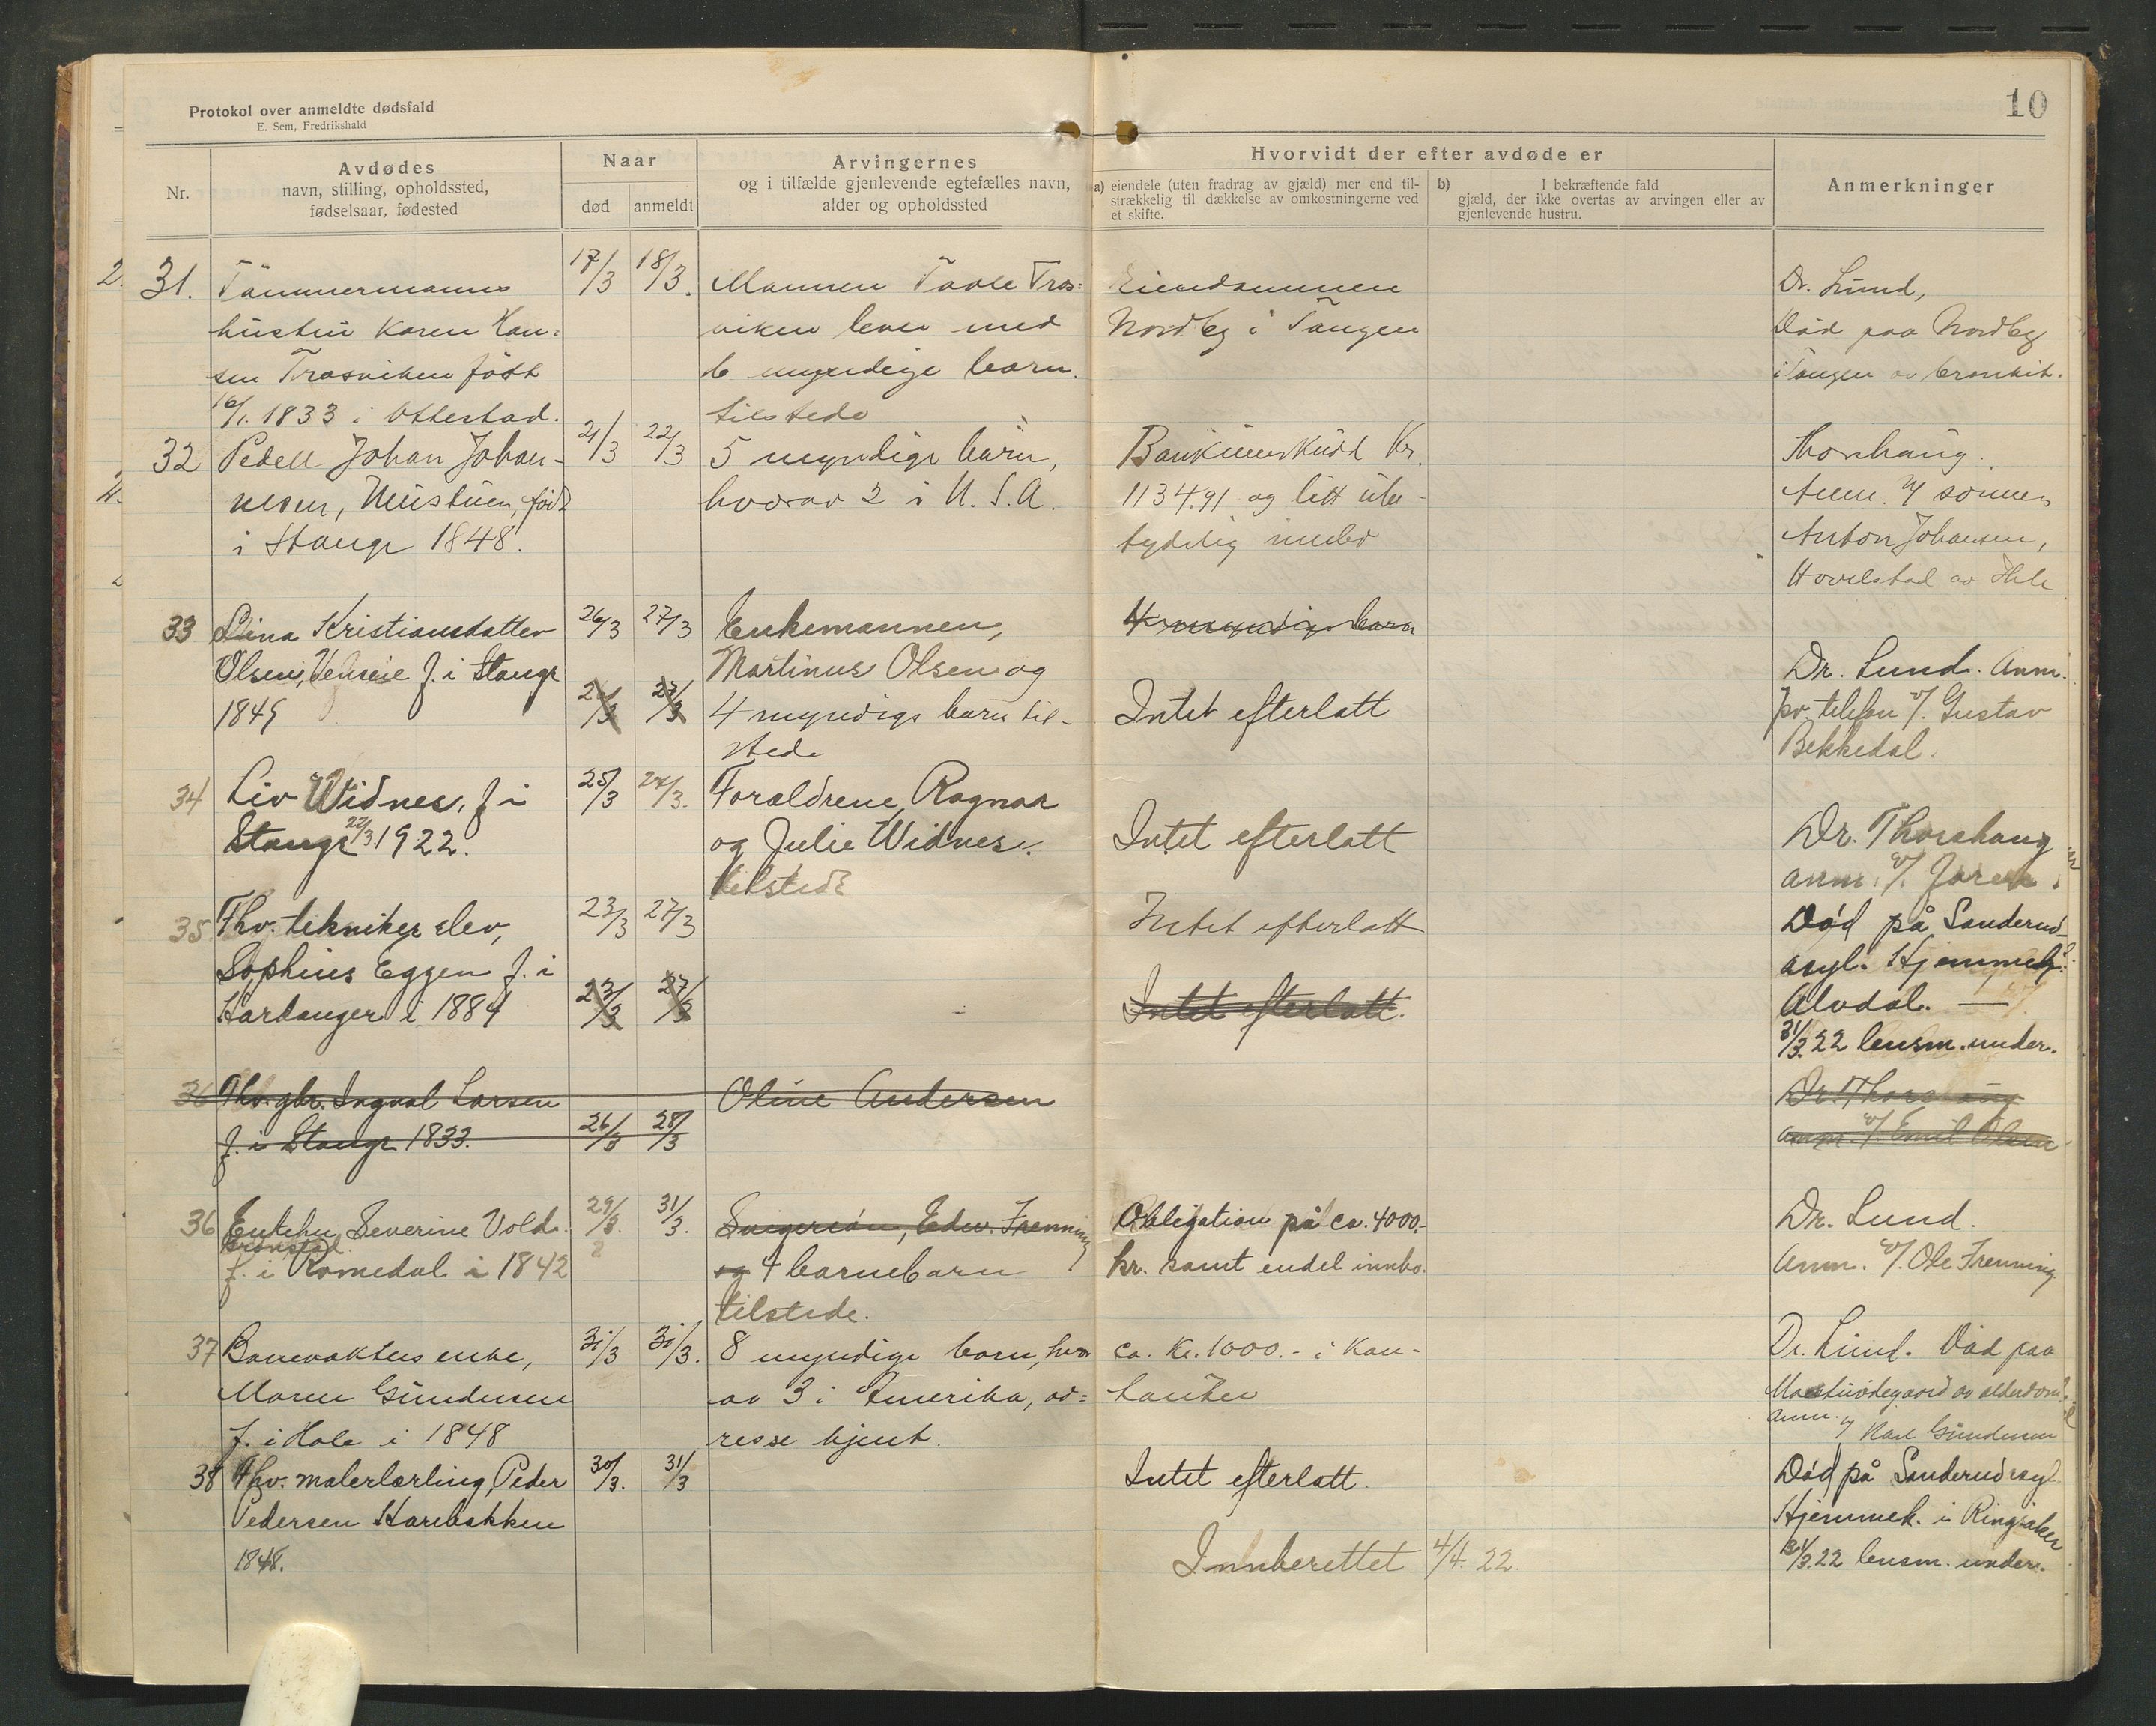 Protokol over anmeldte dødsfald
E. Sem, Fredrikshald
10
Nr.
Avdødes
navn, stilling, opholdssted,
fødselsaar, fødested
Naar
død
anmeldt
Arvingernes
og i tilfælde gjenlevende egtefælles navn,
alder og opholdssted
Hvorvidt der efter avdøde er
a) eiendele (uten fradrag av gjæld) mer end til-
strækkelig til dækkelse av omkostningerne ved
et skifte.
b) I bekræftende fald
gjæld, der ikke overtas av arvingen eller av
gjenlevende hustru.
Anmerkninger
31.
Tømmermanns
hustru Karen Han-
sen Trosviken født
16/1. 1833 i Ottestad.
17/3
18/3.
Mannen Paale Tros=
viken lever med
6 myndige barn.
tilstede
Eiendommen
Nordby i Tangen
Dr. Lund,
Død paa Nordby
i Tangen av bronkit.
32
Pedell Johan Johan-
nesen, født
i Stange 1848.
21/3
22/3
5 myndige barn,
hvorav 2 i U.S.A.
Bankinnskudd Kr.
1134.91 og litt ube-
tydelig innbo
Thorshaug.
Anm. v/ sønnen
Anton Johansen,
33
Lina Kristiansdatter
Olsen, f. i Stange
1849
26/3
27/3
26/3
27/3
Enkemannen,
Martinus Olsen og
4 myndige barn til-
stede
4 myndige barn
Intet efterlatt
Dr. Lund. Anm.
pr. telefon v/. Gustav
Bekkedal.
34
Liv Widnes, f i
Stange 22/3 1922.
25/3
27/3.
Foraldrene, Ragnar
og Julie Widnes.
tilstede
Intet efterlatt
Dr. Thorshaug
anm. v/.
35
Fhv. tekniker elev,
Sophus Eggen f. i
Hardanger i 1884
23/3
27/3
23/3
27/3
Intet efterlatt
Intet efterlatt.
Død på Sanderud
asyl. Hjemmeh.
Alvdal. —
31/3. 22 lensm. under.
36
Fhv. gbr. Ingval Larsen
f. i Stange 1833.
26/3
28/3
Oline Andersen
Dr. Thorshaug
anm. v/. Emil Olsen
36
Enkefru Severine Vold
f. i Romedal i 1842
29/3.
31/3.
Svigersøn, Edw. Frenning
og 4 barnebarn
tilstede.
Obligation på ca. 4000.-
kr. samt endel innbo.
Dr. Lund.
Anm. v/. Ole Frenning
37
Banevokters enke,
Maren Gundersen
f. i Hole i 1848
31/3
31/3.
8 myndige barn, hvor
av 3 i Amerika, ad=
resse kjent.
ca. Kr. 1000.- i kon-
tanter
Dr. Lund. Død paa
av alderdom.
Anm. v/ Karl Gundersen
38
Fhv. malerlærling, Peder
Pedersen Harebakken
1848.
30/3.
31/3
Intet efterlatt.
Død på Sanderud asyl
Hjemmeh. i Ringsaker
31/3. 22 lensm. under.
Innberettet 4/4. 22.